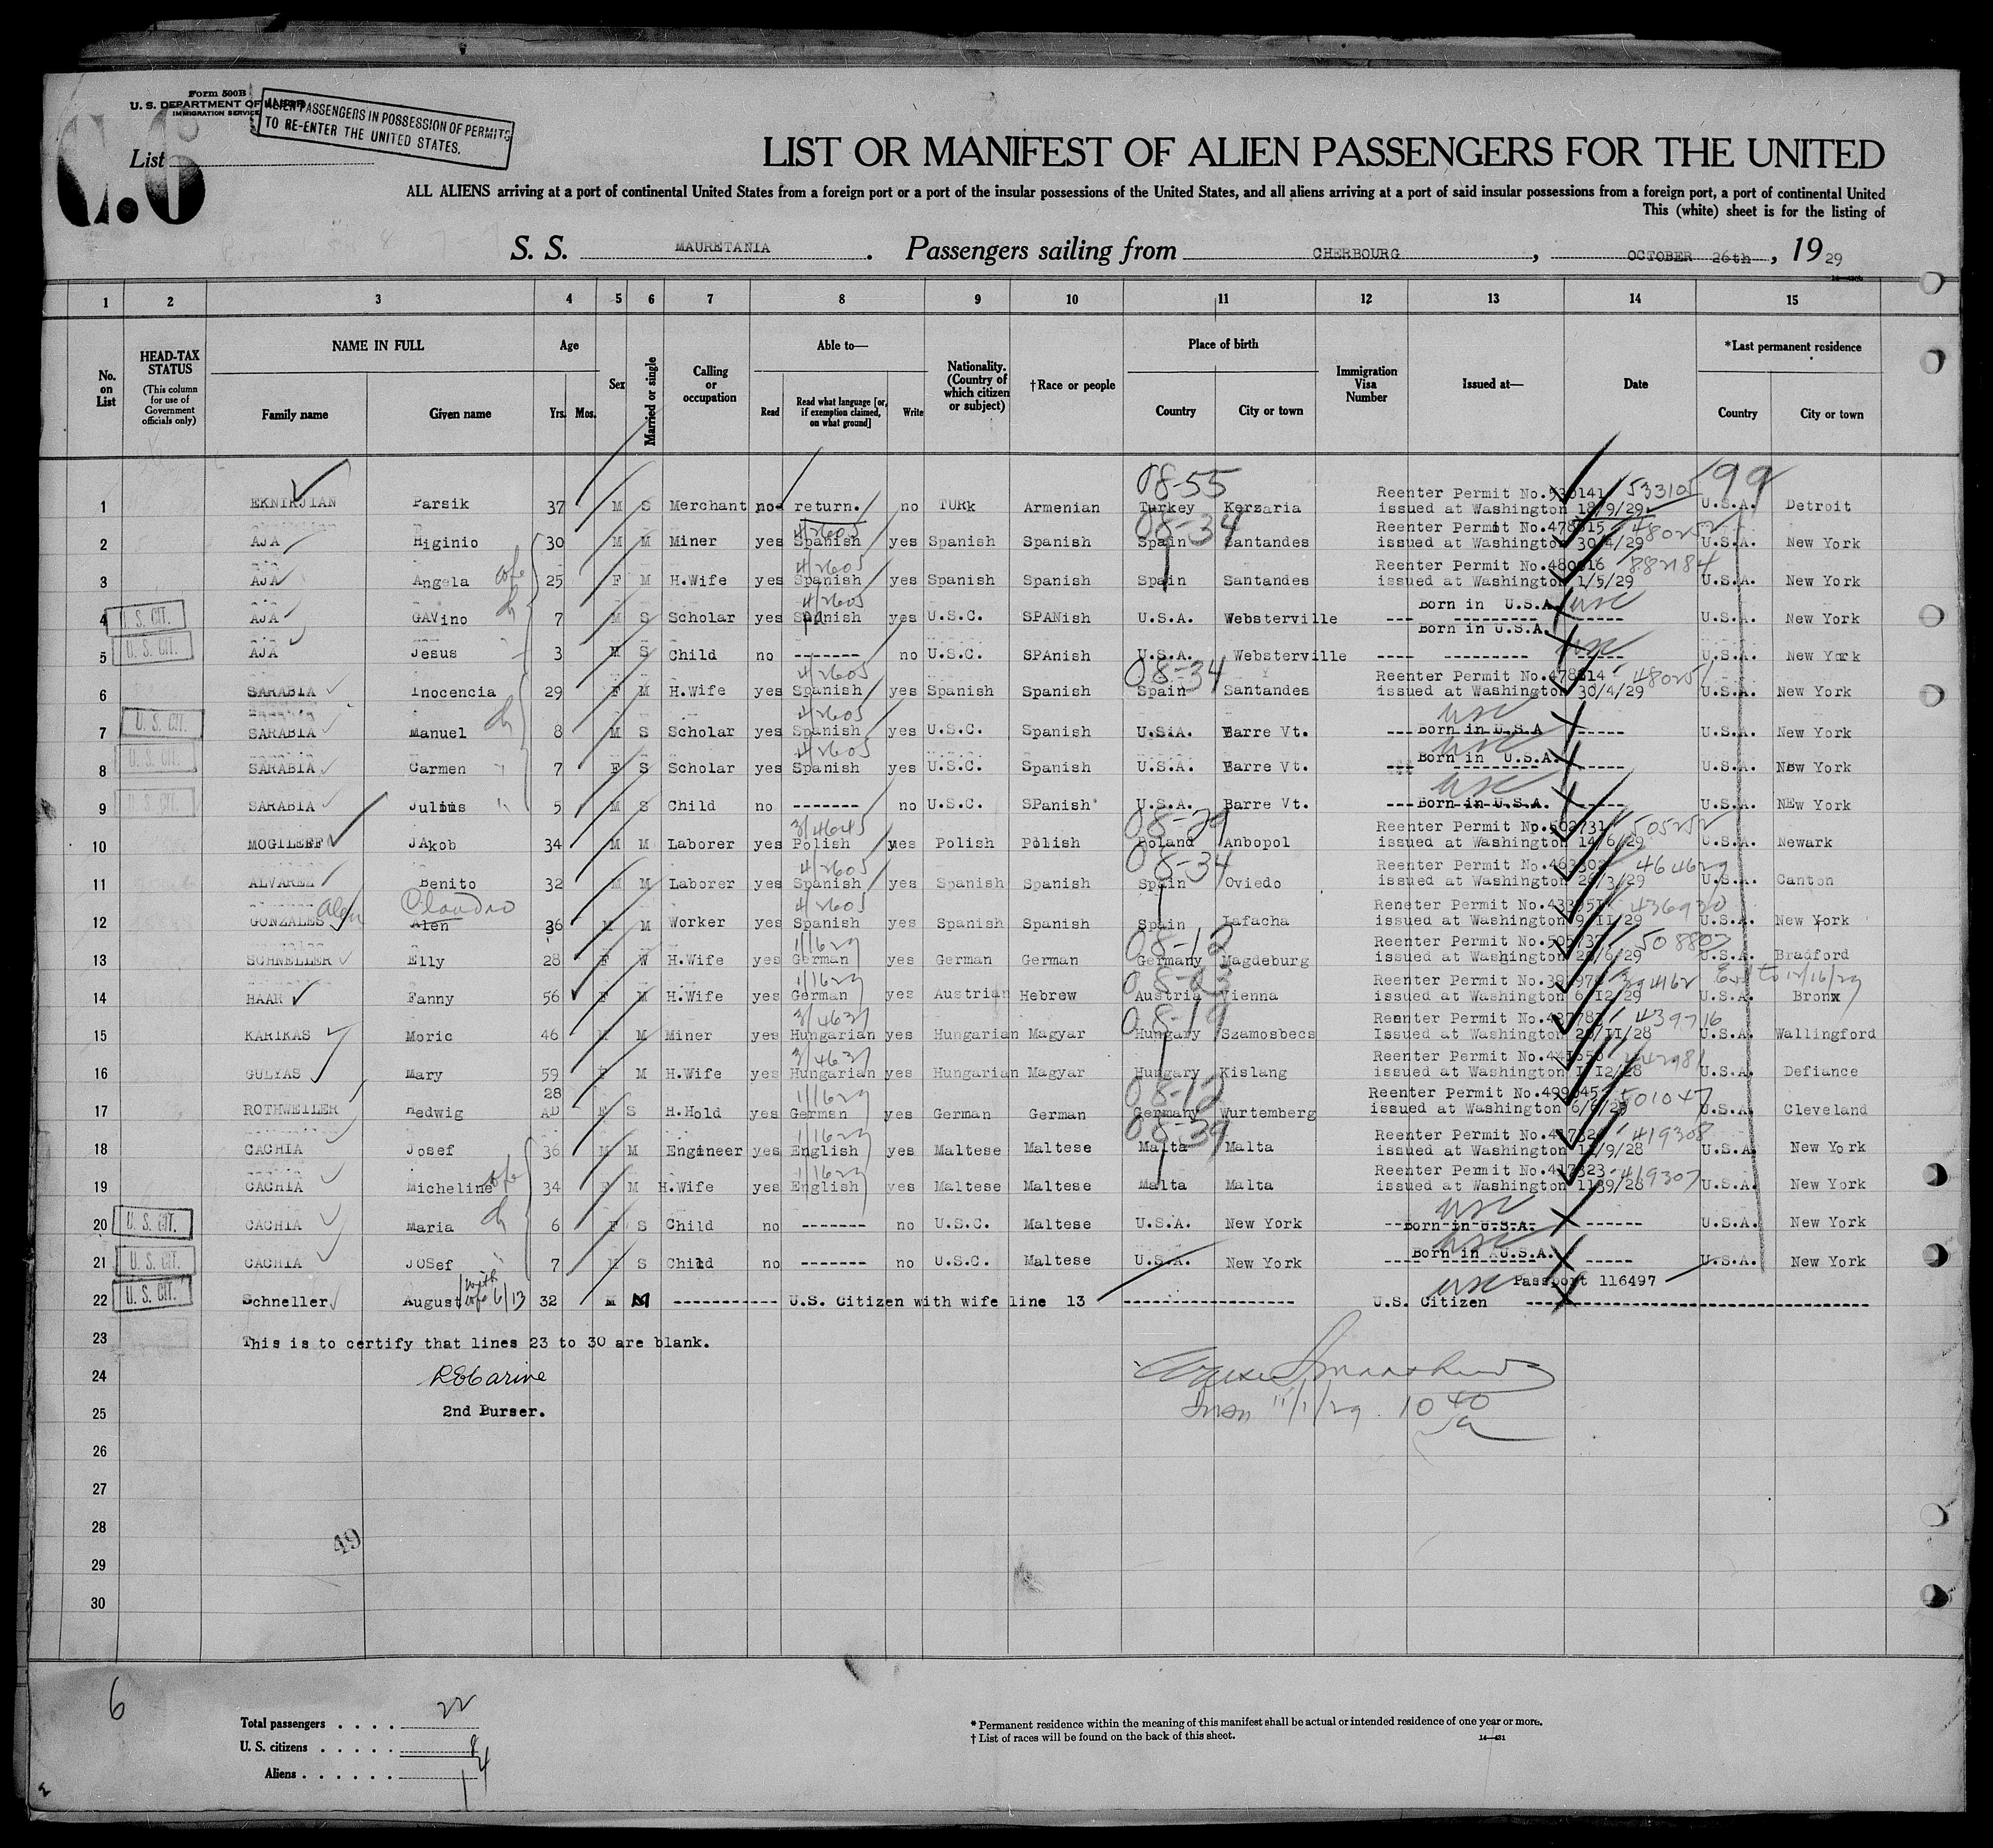 Form 500B
U. S. DEPARTMENT OF LABOR
IMMIGRATION SERVICE
ALIEN PASSENGERS IN POSSESSION OF PERMITS
TO RE-ENTER THE UNITED STATES.
List
LIST OR MANIFEST OF ALIEN PASSENGERS FOR THE UNITED
ALL ALIENS arriving at a port of continental United States from a foreign port or a port of the insular possessions of the United States, and all aliens arriving at a port of said insular possessions from a foreign port, a port of continental United
This (white) sheet is for the listing of
S. S. MAURETANIA. Passengers sailing from CHERBOURG, OCTOBER 26th, 1929
1 2 3 4 5 6 7 8 9 10 11 12 13 14 15
No. on List
HEAD-TAX STATUS (This column for use of Government officials only)
NAME IN FULL Family name Given name
Age Yrs. Mos.
Sex
Married or single
Calling or occupation
Able to— Read Read what language [or, if exemption claimed, on what ground] Write
Nationality. (Country of which citizen or subject)
†Race or people
Place of birth Country City or town
Immigration Visa Number
Issued at—
Date
*Last permanent residence Country City or town
08-55 99
1 EKNIRJIAN Parsik 37 M S Merchant no return. no TURk Armenian Turkey Kerzaria Reenter Permit No.530141 533105 issued at Washington 18/9/29. U.S.A. Detroit
4/2605 08-34
2 AJA Higinio 30 M M Miner yes Spanish yes Spanish Spanish Spain Santandes Reenter Permit No.478615 480252 issued at Washington 30/4/29 U.S.A. New York
4/2605
3 AJA Angela wife 25 F M H.Wife yes Spanish yes Spanish Spanish Spain Santandes Reenter Permit No.480616 882184 issued at Washington 1/5/29 U.S.A. New York
4/2605
4 U. S. CIT. AJA GAVino ch 7 M S Scholar yes Spanish yes U.S.C. SPANish U.S.A. Websterville ---- Born in U.S.A. usc U.S.A. New York
5 U. S. CIT. AJA Jesus 3 M S Child no ------- no U.S.C. SPAnish U.S.A. Websterville ---- Born in U.S.A. usc U.S.A. New York
4/2605 08-34
6 SARABIA Inocencia 29 F M H.Wife yes Spanish yes Spanish Spanish Spain Santandes Reenter Permit No.478614 480251 issued at Washington 30/4/29 U.S.A. New York
4/2605 usc
7 U. S. CIT. SARABIA Manuel ch 8 M S Scholar yes Spanish yes U.S.C. Spanish U.S.A. Barre Vt. Born in U.S.A. U.S.A. New York
4/2605 usc
8 U. S. CIT. SARABIA Carmen 7 F S Scholar yes Spanish yes U.S.C. Spanish U.S.A. Barre Vt. Born in U.S.A. U.S.A. New York
usc
9 U. S. CIT. SARABIA Julius 5 M S Child no ------- no U.S.C. SPanish U.S.A. Barre Vt. Born in U.S.A. U.S.A. NEw York
3/4645 08-29
10 MOGILEFF JAkob 34 M M Laborer yes Polish yes Polish Polish Poland Anbopol Reenter Permit No.502731 505252 issued at Washington 14/6/29 U.S.A. Newark
4/2605 08-34
11 ALVAREZ Benito 32 M M Laborer yes Spanish yes Spanish Spanish Spain Oviedo Reenter Permit No. 464629 issued at Washington U.S.A. Canton
Alen Claudio 4/2605
12 GONZALES Alen 36 M M Worker yes Spanish yes Spanish Spanish Spain Lafacha Reneter Permit No. 436920 issued at Washington 9/II/29 U.S.A. New York
1/1629 08-12
13 SCHNELLER Elly 28 F W H.Wife yes German yes German German Germany Magdeburg Reenter Permit No. 508807 issued at Washington U.S.A. Bradford
1/1629 08-03 Ext to 12/16/29
14 HAAR Fanny 56 F M H.Wife yes German yes Austrian Hebrew Austria Vienna Reenter Permit No. 394162 issued at Washington 6/12/29 U.S.A. Bronx
3/4631 08-19
15 KARIKAS Moric 46 M M Miner yes Hungarian yes Hungarian Magyar Hungary Szamosbecs Reenter Permit No. 439716 Issued at Washington U.S.A. Wallingford
3/4631
16 GULYAS Mary 59 F M H.Wife yes Hungarian yes Hungarian Magyar Hungary Kislang Reenter Permit No. issued at Washington U.S.A. Defiance
28 1/1629 08-12
17 ROTHWEILER Hedwig AD F S H.Hold yes German yes German German Germany Wurtemberg Reenter Permit No. 501047 issued at Washington 6/6/29 U.S.A. Cleveland
1/1629 08-39
18 CACHIA Josef 36 M M Engineer yes English yes Maltese Maltese Malta Malta Reenter Permit No. 419308 issued at Washington U.S.A. New York
1/1629
19 CACHIA Micheline wife 34 F M H.Wife yes English yes Maltese Maltese Malta Malta Reenter Permit No.417323 419307 issued at Washington U.S.A. New York
usc
20 U. S. CIT. CACHIA Maria ch 6 F S Child no ------- no U.S.C. Maltese U.S.A. New York Born in U.S.A. ------ U.S.A. New York
usc
21 U. S. CIT. CACHIA JOSef 7 M S Child no ------- no U.S.C. Maltese U.S.A. New York Born in U.S.A. ----- U.S.A. New York
22 U. S. CIT. Schneller August with wife 6/13 32 M M U.S. Citizen with wife line 13 U.S. Citizen usc Passport 116497
23 This is to certify that lines 23 to 30 are blank.
24
25 2nd Purser.
11/1/29 10 40 a
26
27
28
49
29
30
6
Total passengers . . . . 22
U. S. citizens . . . . . 8
Aliens . . . . . . 14
* Permanent residence within the meaning of this manifest shall be actual or intended residence of one year or more.
† List of races will be found on the back of this sheet.